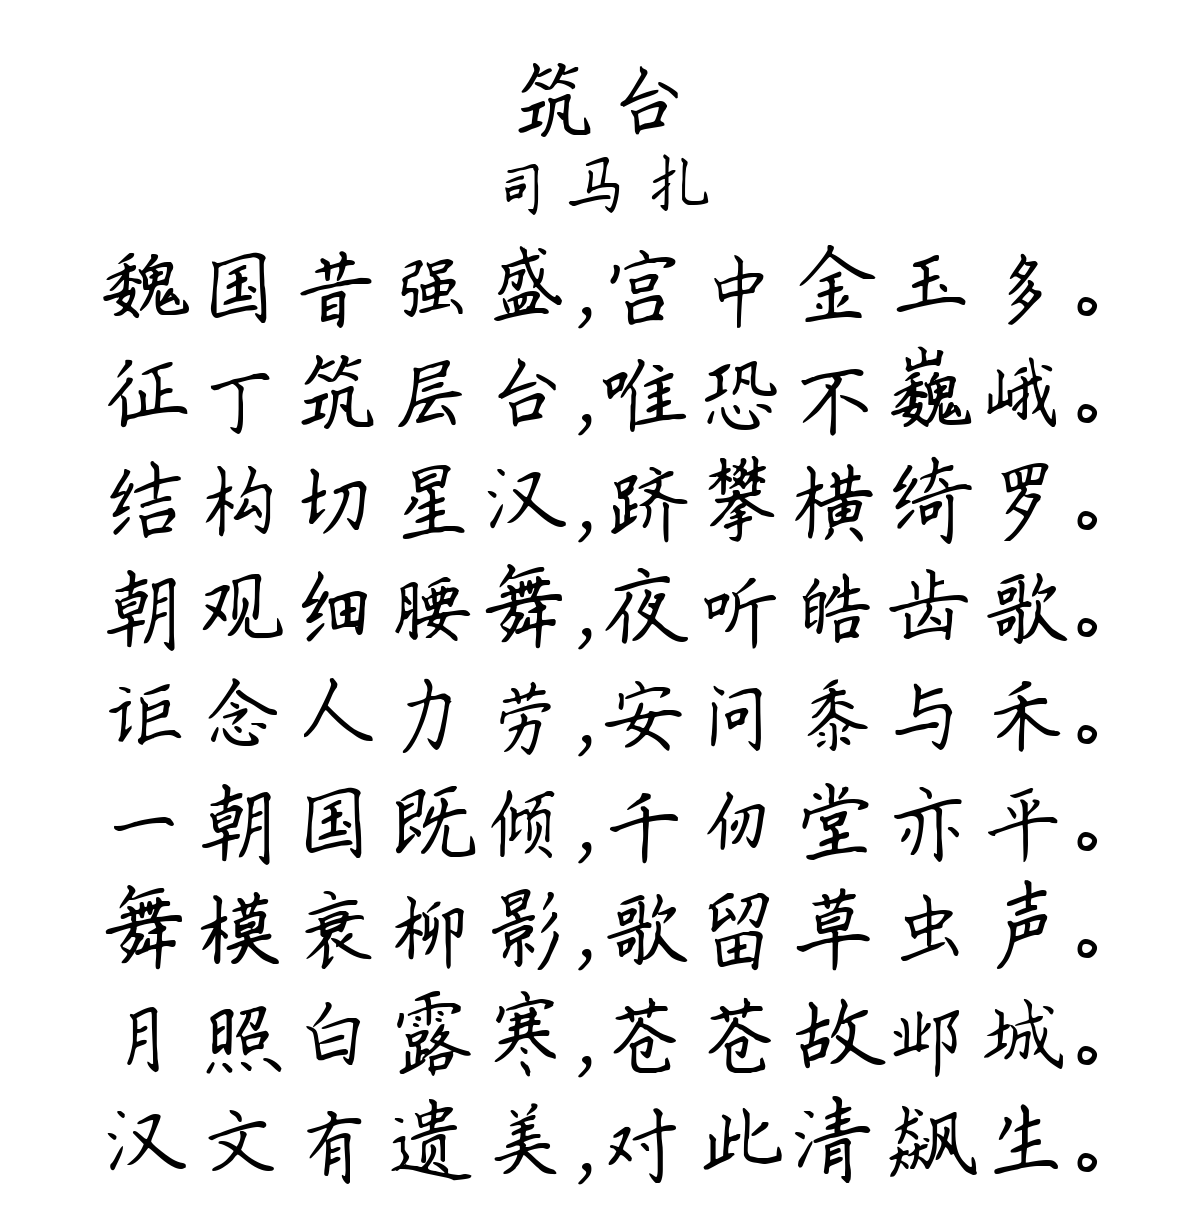 筑台
司马扎
魏国昔强盛,宫中金玉多。
征丁筑层台,唯恐不巍峨。
结构切星汉,跻攀横绮罗。
朝观细腰舞,夜听皓齿歌。
讵念人力劳,安问黍与禾。
一朝国既倾,千仞堂亦平。
舞模衰柳影,歌留草虫声。
月照白露寒,苍苍故邺城。
汉文有遗美,对此清飙生。